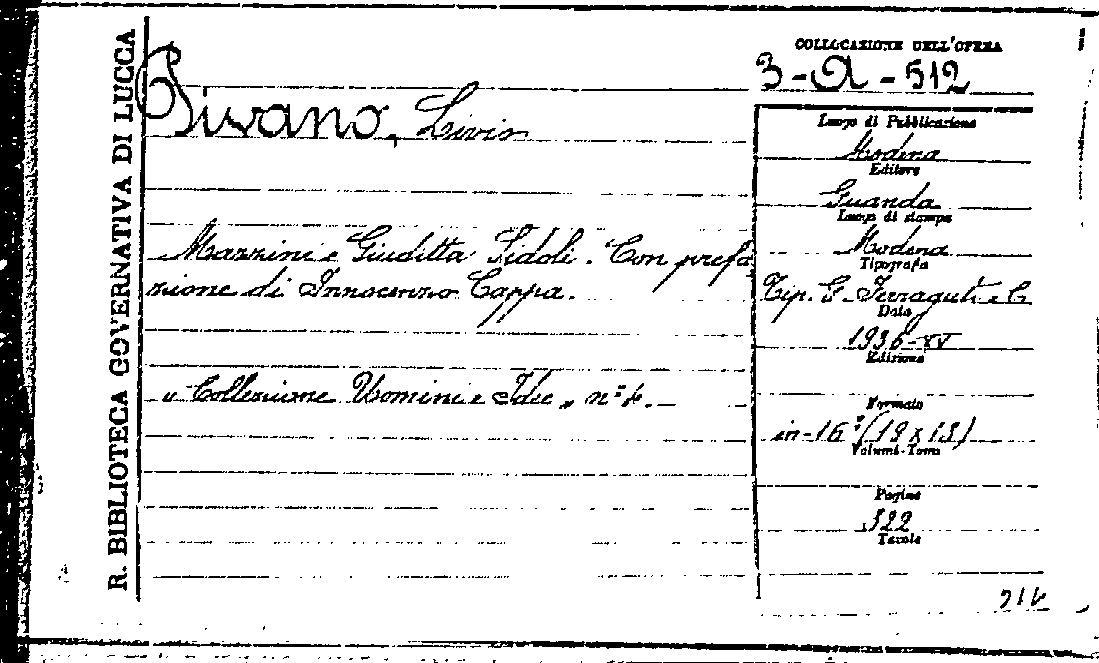 R. BIBLIOTECA GOVERNATIVA DI LUCCA
COLLOCAZIONE DELL'OPERA
3-A-512
Pivano, Livio
Mazzini e Giuditta Sidoli. Con prefa
zione di Innocenzo Cappa.
"Collezione Uomini e Idee" n° 4.
Luogo di Pubblicazione
Modena
Editore
Guanda
Luogo di stampa
Modena
Tipografia
Tip. G. Ferraguti e C.
Data
1936-XV
Edizione
Formato
in-16° (19 x 13)
Volumi-Tomi
Pagine
322
Tavole